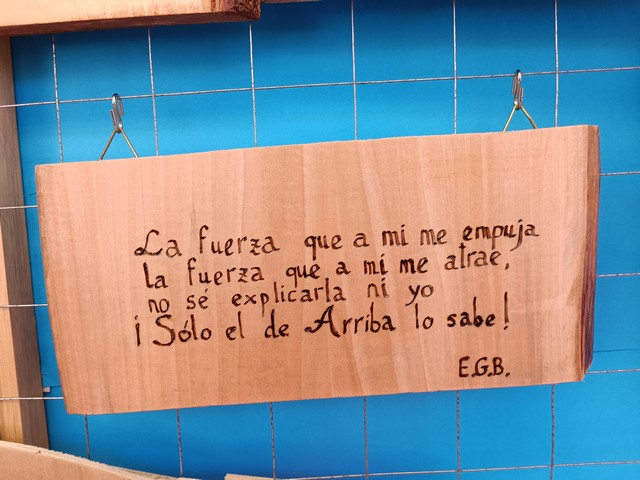 La fuerza que a mi me empuja
la fuerza que a mi me atrae,
no sé explicarla ni yo
¡Sólo el de Arriba lo sabe!
E.G.B.